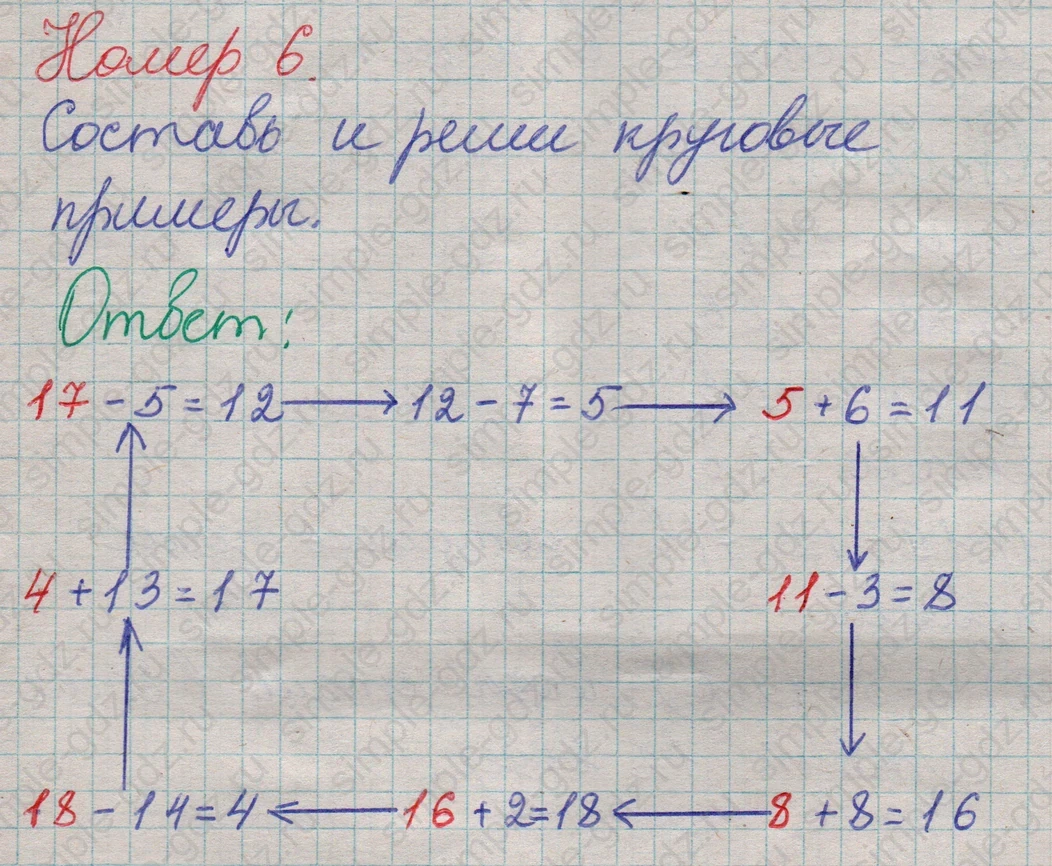 Номер 6.
Составь и реши круговые
примеры.
Ответ:
17 - 5 = 12 → 12 - 7 = 5 → 5 + 6 = 11
4 + 13 = 17 11 - 3 = 8
18 - 14 = 4 ← 16 + 2 = 18 ← 8 + 8 = 16
simple-gdz.ru